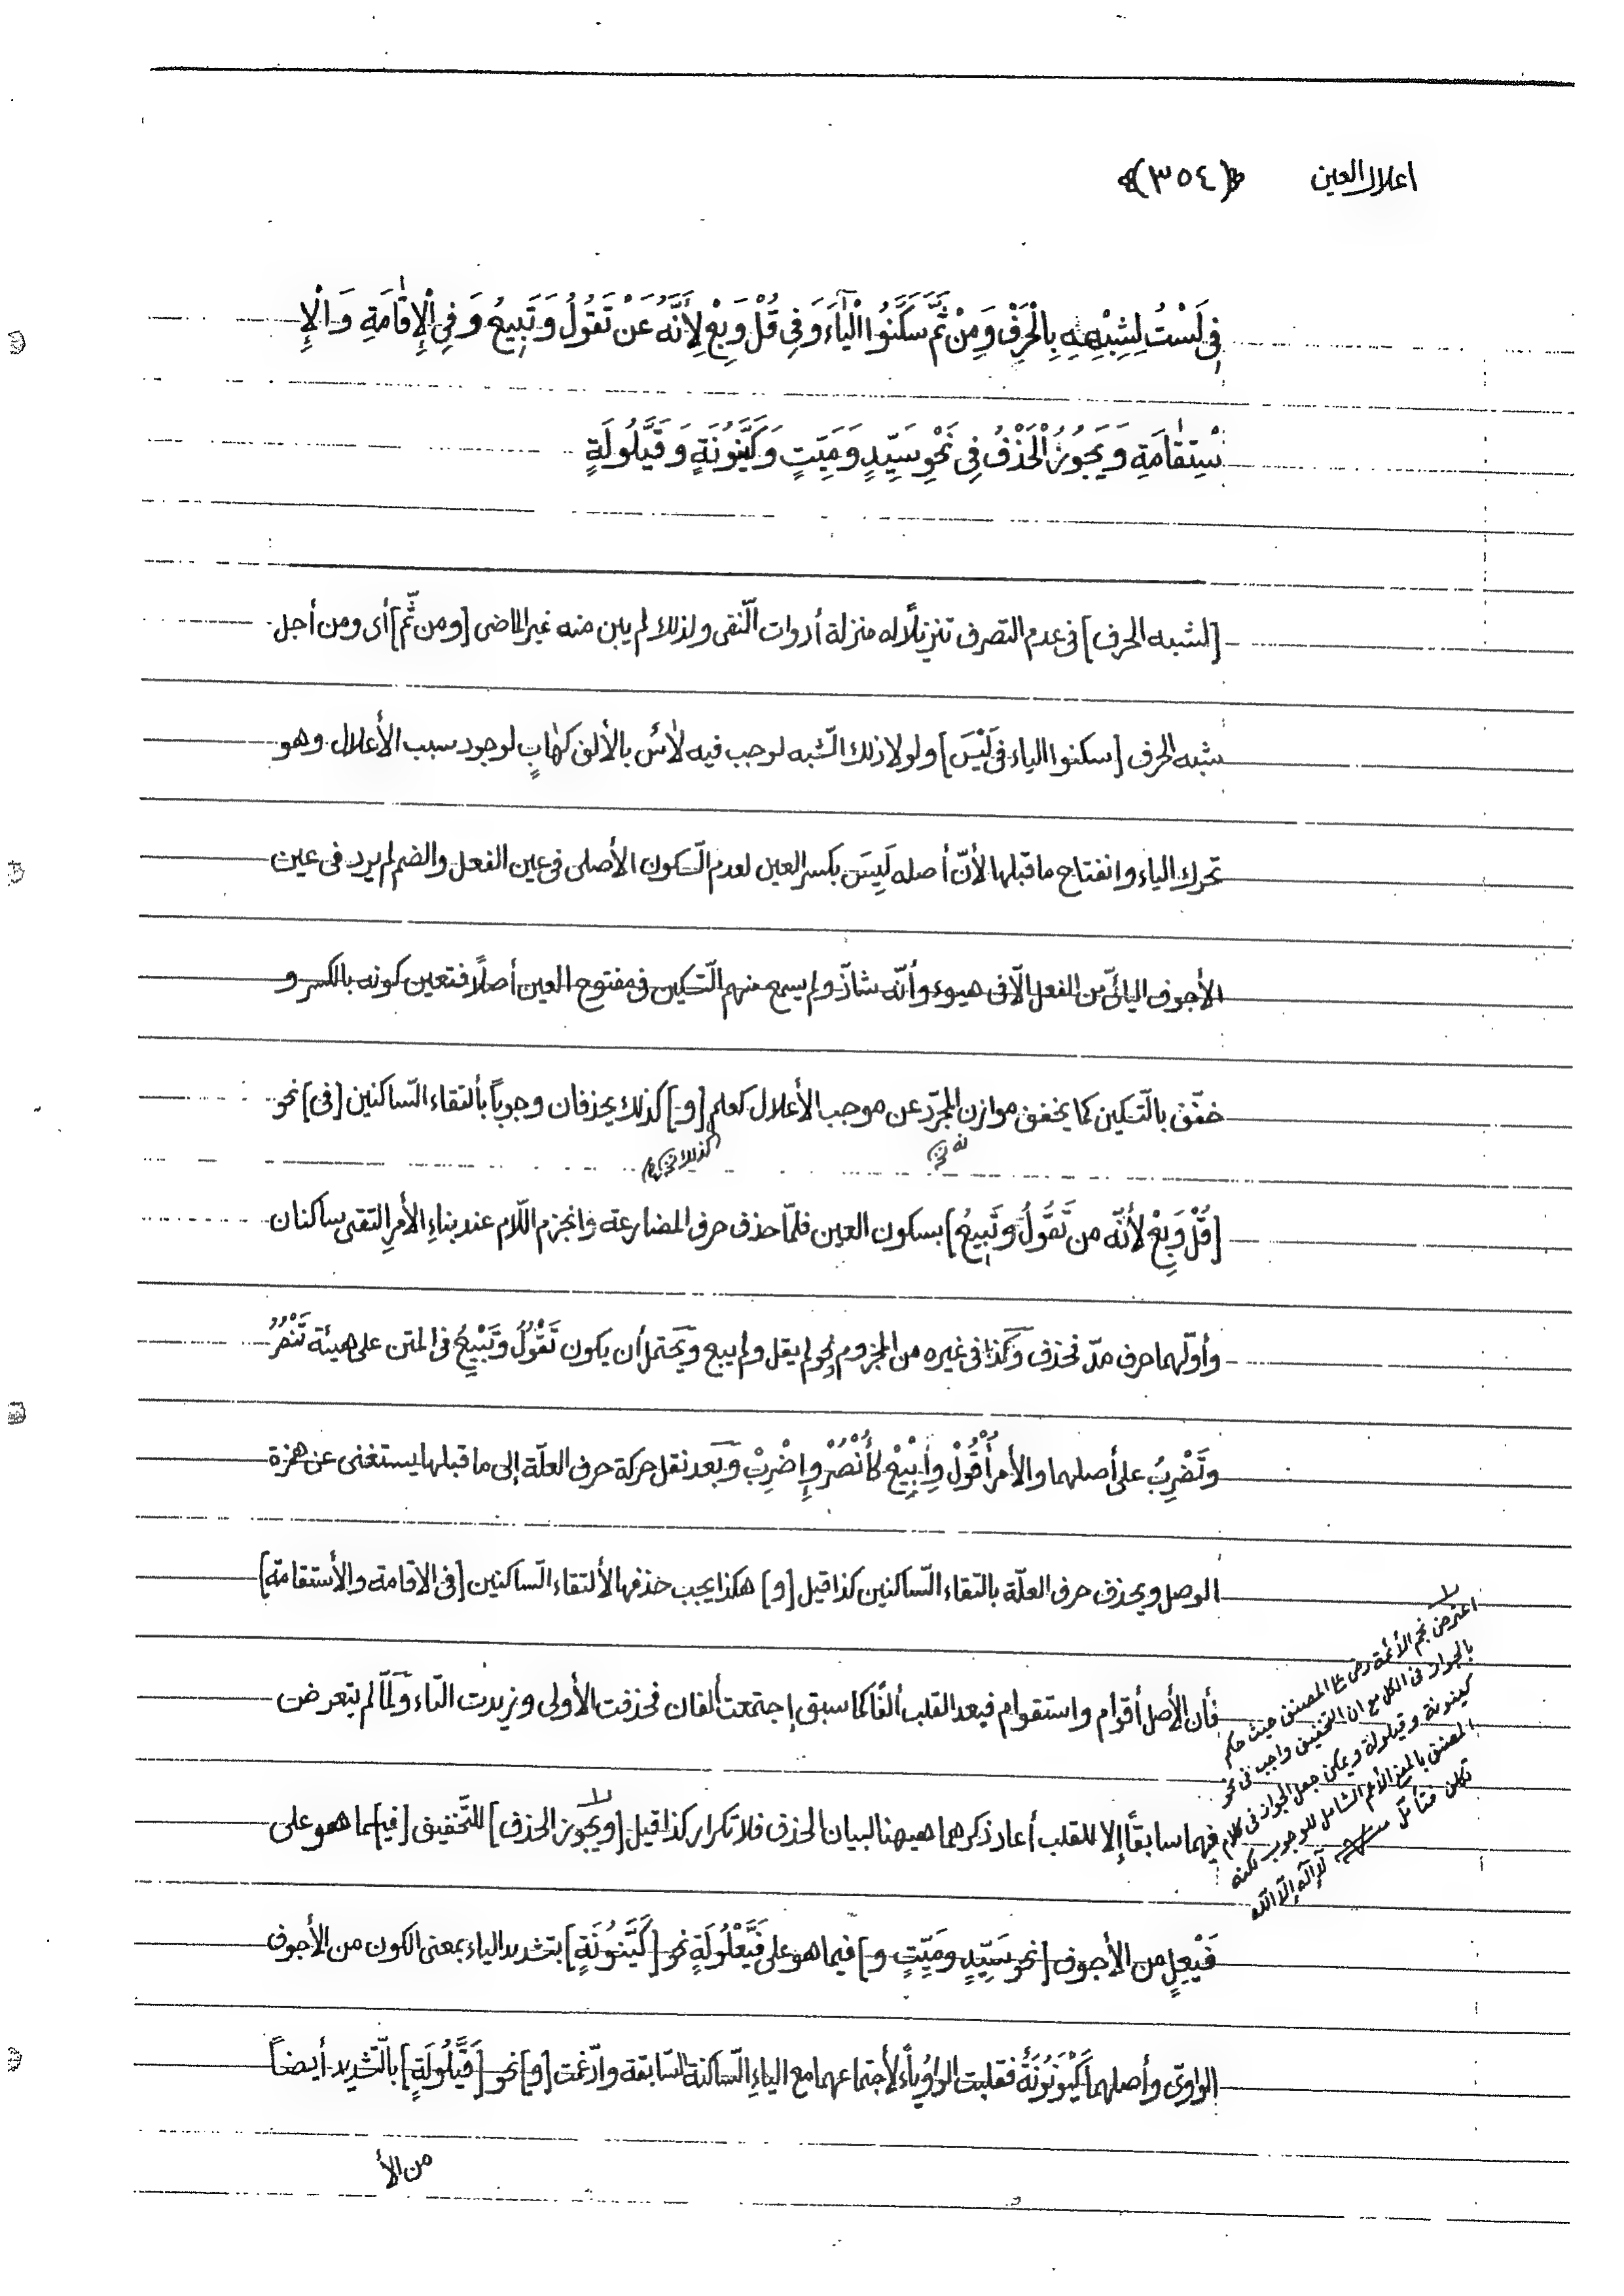 اعلال العين ﴿٣٥٤﴾
فِي لَسْتُ لِشِبْهِهِ بِالْحَرْفِ وَمِنْ ثَمَّ سَكَّنُوا الْيَاءَ وَفِي قُلْ وَبِعْ لِأَنَّهُ عَنْ تَقُولُ وَتَبِيعُ وَفِي الْإِقَامَةِ وَالْإِ
سْتِقَامَةِ وَيَجُوزُ الْحَذْفُ فِي نَحْوِ سَيِّدٍ وَمَيِّتٍ وَكَيَّنُونَةٍ وَقَيَّلُولَةٍ
[لشبه الحرف] فى عدم التصرف تنزيلاً له منزلة أدوات النّفى ولذلك لم يبن منه غير الماضى [ومن ثَّم] أى ومن أجل
شبه الحرف [سكنوا الياء فى لَيْسَ] ولولا ذلك الشّبه لوجب فيه لاٰسَ بالألف كهٰابٍ لوجود سبب الأعلال وهو
تحرك الياء وانفتاح ما قبلها لأنّ أصله لَيِسَ بكسر العين لعدم السّكون الأصلى فى عين الفعل والضم لم يرد فى عين
الأجوف اليائىّ من الفعل الّا فى هيوء وأنّه شاذّ ولم يسمع منهم التّسكين فى مفتوح العين أصلاً فتعين كونه بالكسر و
خفّف بالتّسكين كما يخفف موازن المجرّد عن موجب الأعلال كعلم [و] كذلك يحذفان وجوباً بألتقاء السّاكنين [فى] نحو
كذلك
[قُلْ وَبِعْ لأنّه من تَقُولُ وتَبِيعُ] بسكون العين فلمّا حذف حرف المضارعة وانجزم اللّام عند بناءِ الأمرِ التقى ساكنان
وأوّلهما حرف مدّ فحذف وكذا فى غيره من المجزوم نحو لم يقل ولم يبع ويحتمل أن يكون تَقْوُلُ وتَبْيِعُ فى المتن على هيئة تَنْصُرُ
وتَضْرِبُ على أصلهما والأمر أُقْوُلْ وإِبْيِعْ كأُنْصُرْ وإِضْرِبْ وبعد نقل حركة حرف العلّة إلى ما قبلها يستغنى عن همزة
الوصل ويحذف حرف العلّة بالتقاء السّاكنين كذا قيل [و] هكذا يجب حذفها لألتقاء السّاكنين [فى الاقامة والأستقامة]
فأن الأصل أقوام واستقوام فبعد القلب ألفًا كما سبق إجتمعت ألفان فحذفت الأولى وزيدت التّاء ولمّا لم يتعرض
فيهما سابقًا إلا للقلب أعاد ذكرهما هيهنا لبيان الحذف فلا تكرار كذا قيل [ويجوز الحذف] للتّخفيف [فيـ]ـما هو على
فَيْعِلٍ من الأجوف [نحو سَيِّدٍ ومَيِّتٍ و] فيما هو على فَيْعَلُولَةٍ نحو [كَيَّنُونَةٍ] بتشديد الياء بمعنى الكون من الأجوف
الواوىّ وأصلهما كَيْوَنُونَةٌ فقلبت الواو ياءً لأجتماعهما مع الياءِ السّاكنة السّابقة وادّغمت [و] نحو [قَيَّلُولَةٍ] بالتّشديد أيضاً
من الأ
اعترض نجم الأئمة رض ع المصنف حيث حكم
بالجواز فى الكل مع ان التخفيف واجب فى نحو
كينونة وقيلولة ويمكن جعل الجواز فى كلام
المصنف بالمعنى الأعم الشامل للوجوب لكنه
تكلف فتأمّل
لا إله إلّا اللّه